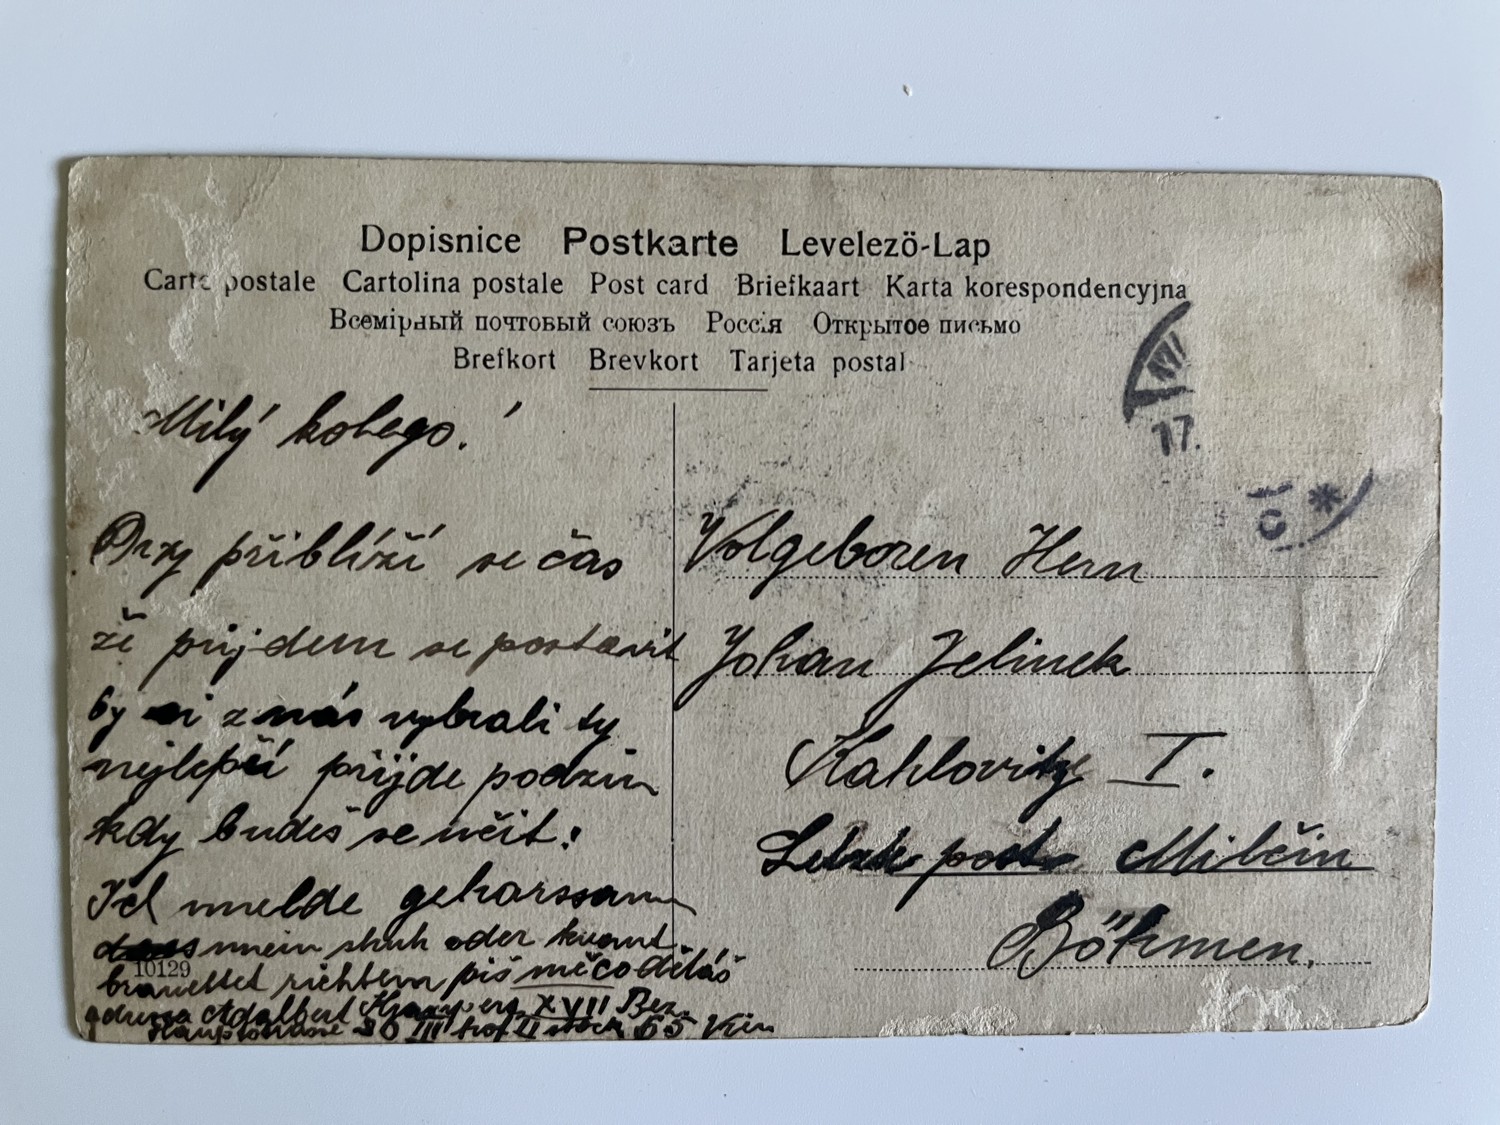 Dopisnice Postkarte Levelezö-Lap
Carte postale Cartolina postale Post card Briefkaart Karta korespondencyjna
Всемірный почтовый союзъ Россія Открытое письмо
Brefkort Brevkort Tarjeta postal
17.
Milý kolego!
Brzy přiblíží se čas
že přijdem se postavit
by si z nás vybrali ty
nejlepší přijde podzim
kdy budeš se učit:
Ich melde gehorssam
mein shuh oder kvant
richtem piš mě co děláš
10129
adressa Adalbert XVII Bez.
36 III hof II stock 65 Vin
Volgeboren Hern
Johan Jelinek
Kahlovitz I.
Letzte post Milčin
Böhmen.